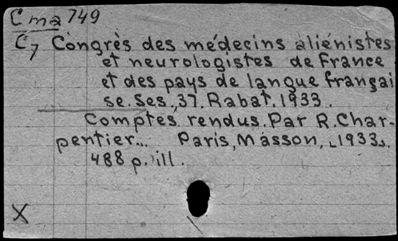 Cma 749
C7 Congrès des médecins aliénistes
et neurologistes de France
et des pays de langue françai
se. Ses, 37. Rabat, 1933.
Comptes rendus. Par R. Char-
pentier... Paris, Masson, [1933].
488 p. ill.
X